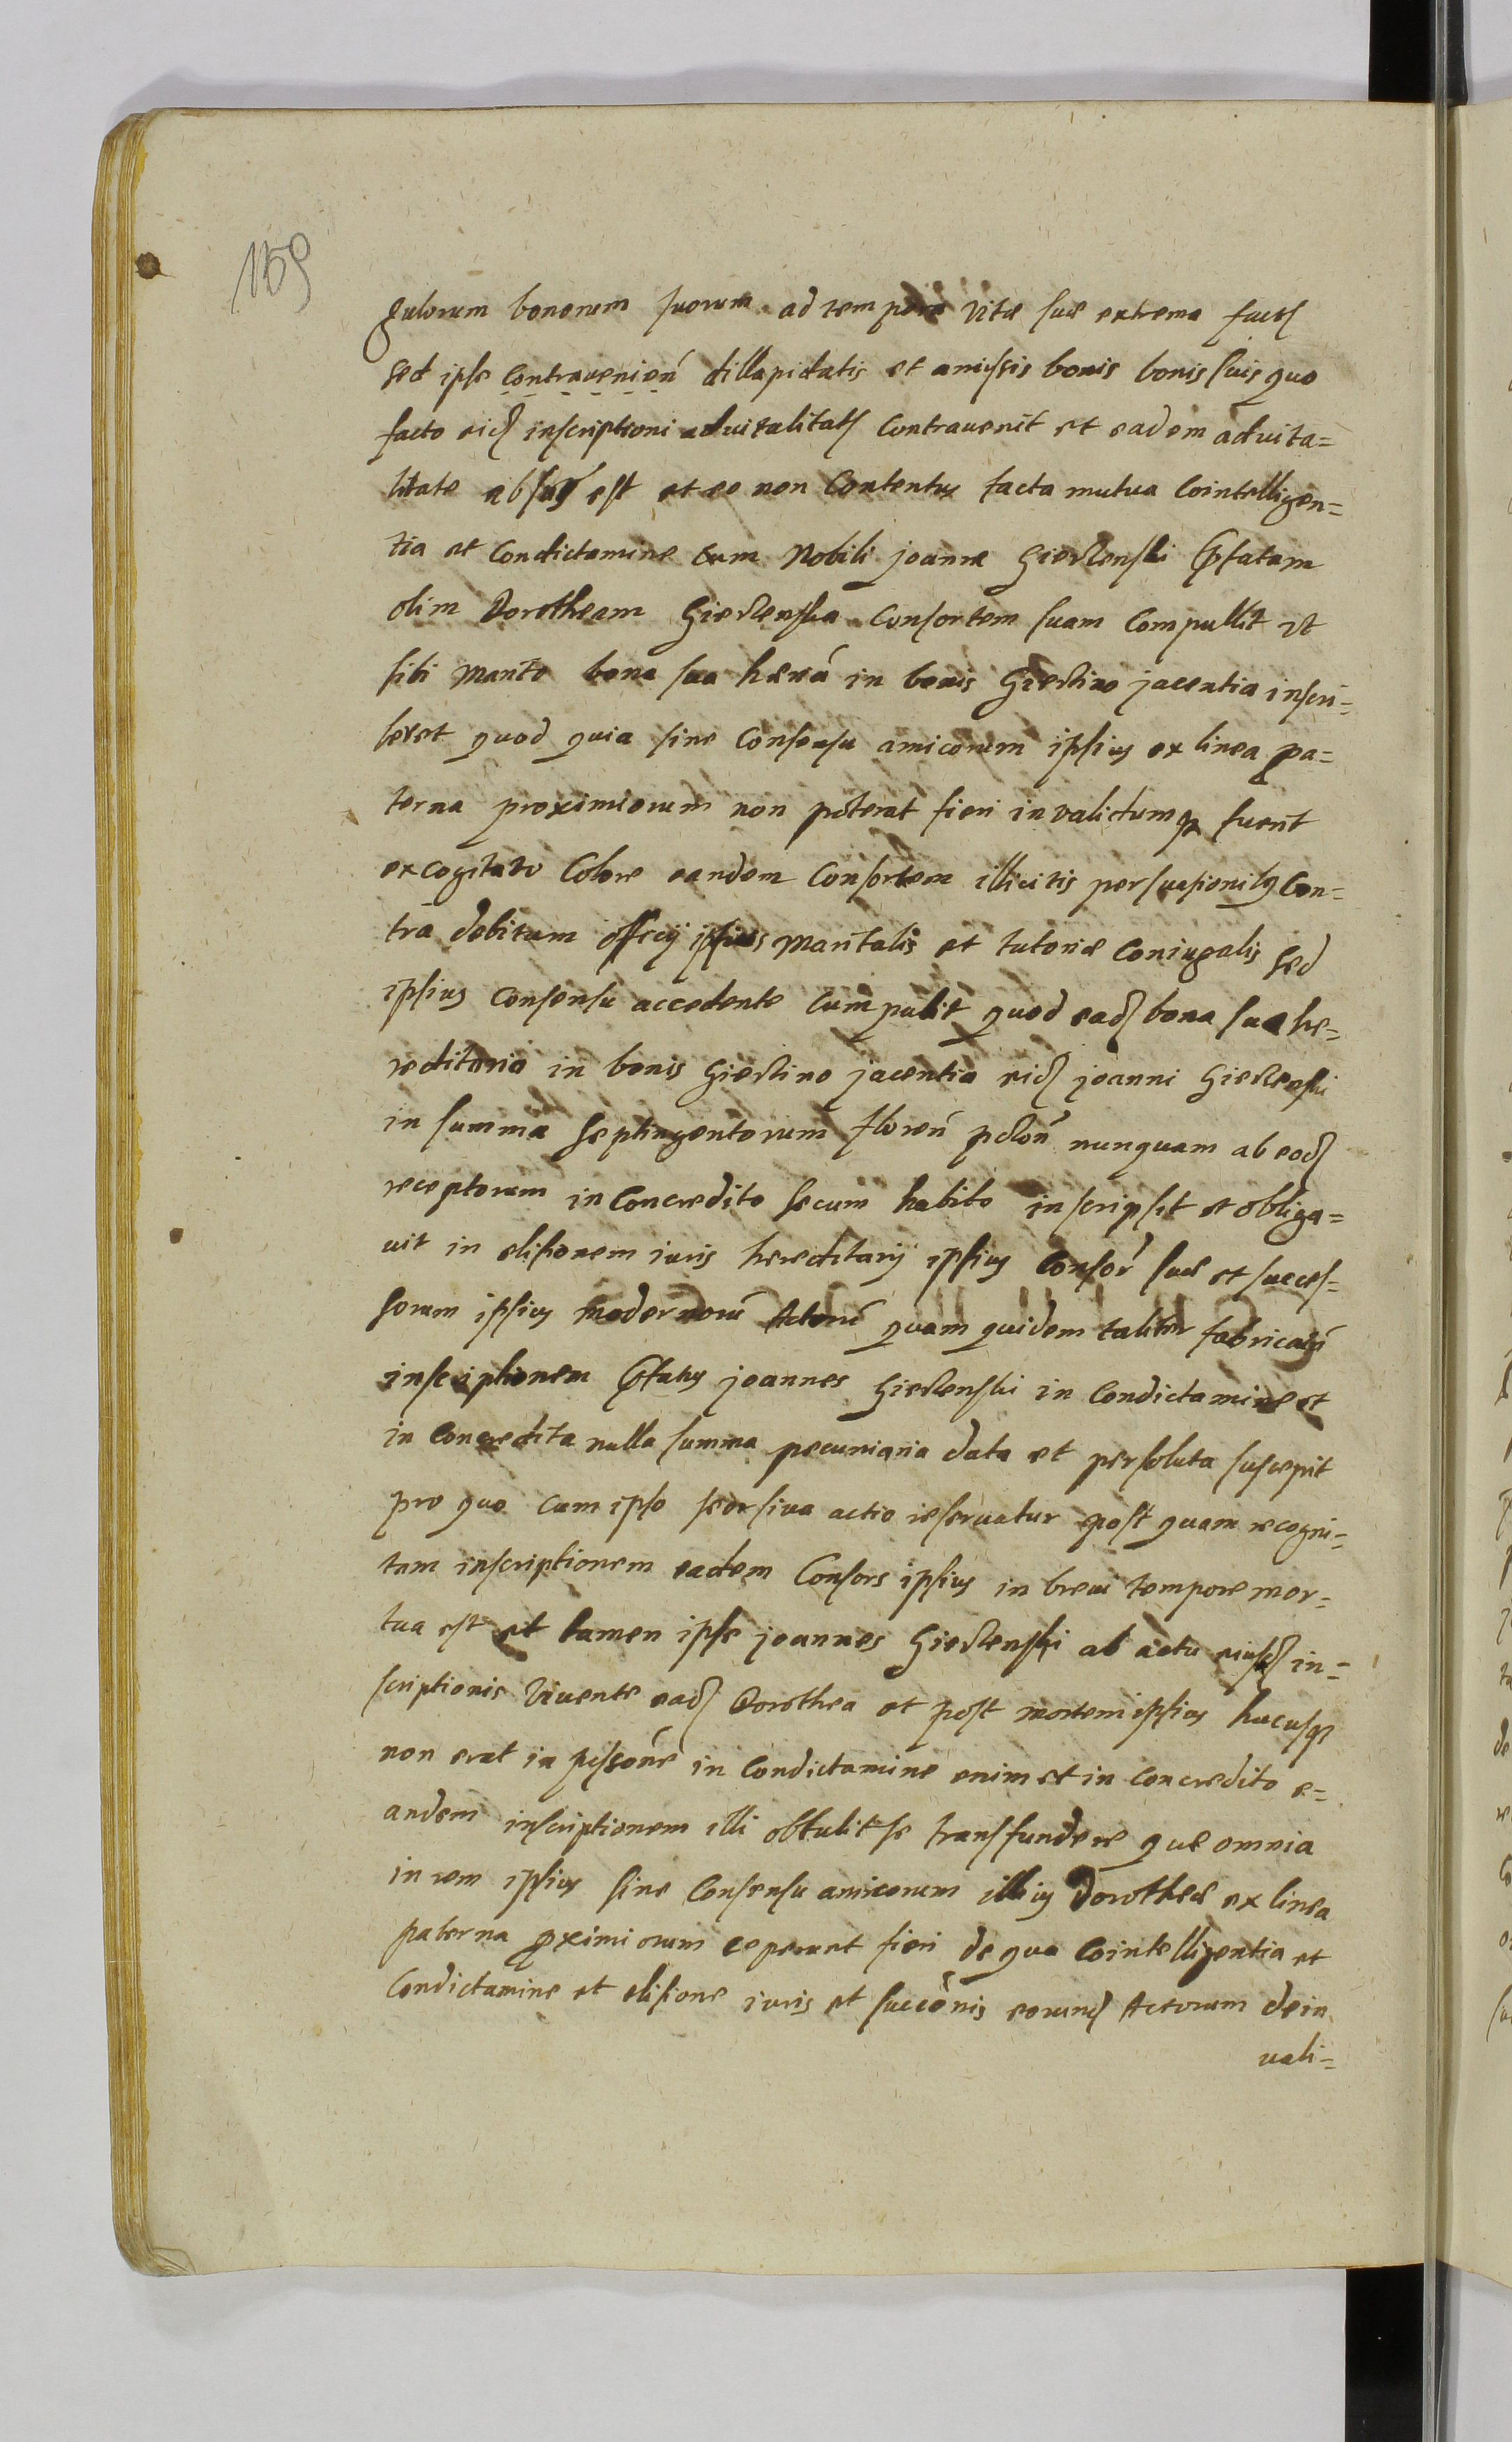 159
gulorum bonorum suorum ad tempora vitæ suæ extrema
sed ipse contravenien̄ dillapidatis et amissis bonis bonis suis quo
facto inscriptioni advitalitatis contravenit et eadem advita=
litate abusus est et eo non contentus facta mutua cointelligen=
tia et condictamine cum Nobili joanne Gierlenski pfatam
olim Dorotheam Gierlenska consortem suam compullit ut
sibi marito bona sua hæred̄ in bonis Gierlino jacentia inscri=
beret quod quia sine consensu amicorum ipsius ex linea pa=
terna proximiorum non poterat fieri invalidumq fuerit
excogitato colore eandem consortem illicitis persuasionibq con=
tra debitum officij ipsius maritalis et tutoriæ coniugalis sed
ipsius consensu accedente compulit quod ead bona sua he=
reditaria in bonis Gierlino jacentia eid joanni Gierlenski
in summa septingentorum floren̄ polon̄ nunquam ab eod
receptorum in concredito secum habito inscripsit et obliga=
vit in elisionem iuris hereditarij ipsius consor̄ suæ et succes=
sorum ipsius modernorū Actorū quam quidem taliter fabricatā
inscriptionem pfatus joannes Gierlenski in condictamine et
in concredita nulla summa pecuniaria data et persoluta suscepit
pro quo cum ipso seorsiva actio reservatur post quam recogni=
tam inscriptionem eadem consors ipsius in brevi tempore mor=
tua est et tamen ipse joannes Gierlenski ab actu eiusd in=
scriptionis vivente ead Dorothea et post mortem ipsius hucusq
non erat in possōne in condictamine enim et in concredito e=
andem inscriptionem illi obtulit se transfundere quæ omnia
in rem ipsius sine consensu amicorum illius Dorotheæ ex linea
paterna pximiorum ceperunt fieri de qua cointelligentia et
condictamine et elisione iuris et succōnis eorund Actorum de in
vali=